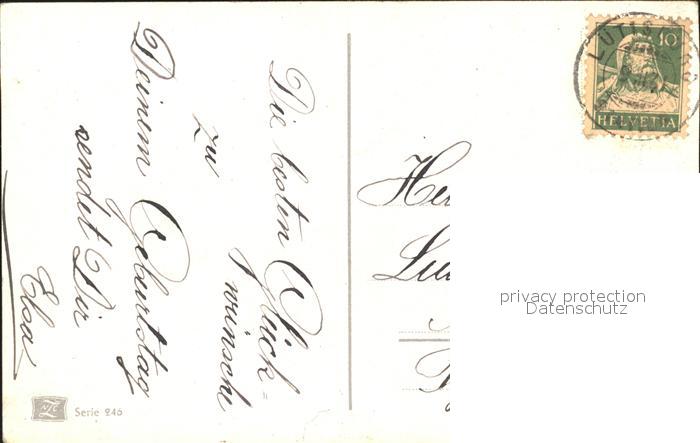 Die besten Glück=
wünsche
zu
Deinem Geburtstag
sendet Dir
Elsa
Serie 246
10
HELVETIA
privacy protection
Datenschutz